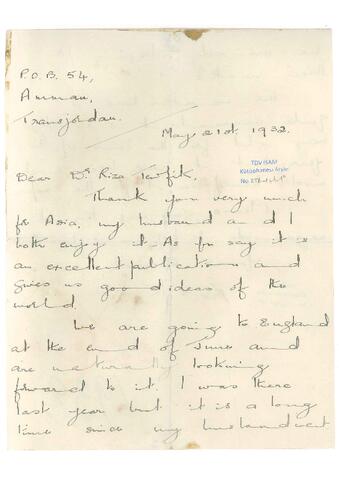 P.O.B. 54,
Amman,
Transjordan.
May 21st. 1932.
Dear Dr Riza Tewfik.
TDV İSAM
Kütüphanesi Arşivi
No
Thank you very much
for Asia, my husband and I
both enjoy it. As you say it is
an excellent publication and
gives us good ideas of the
world.
We are going to England
at the end of June and
are naturally looking
forward to it. I was there
last year but it is a long
time since my husband went